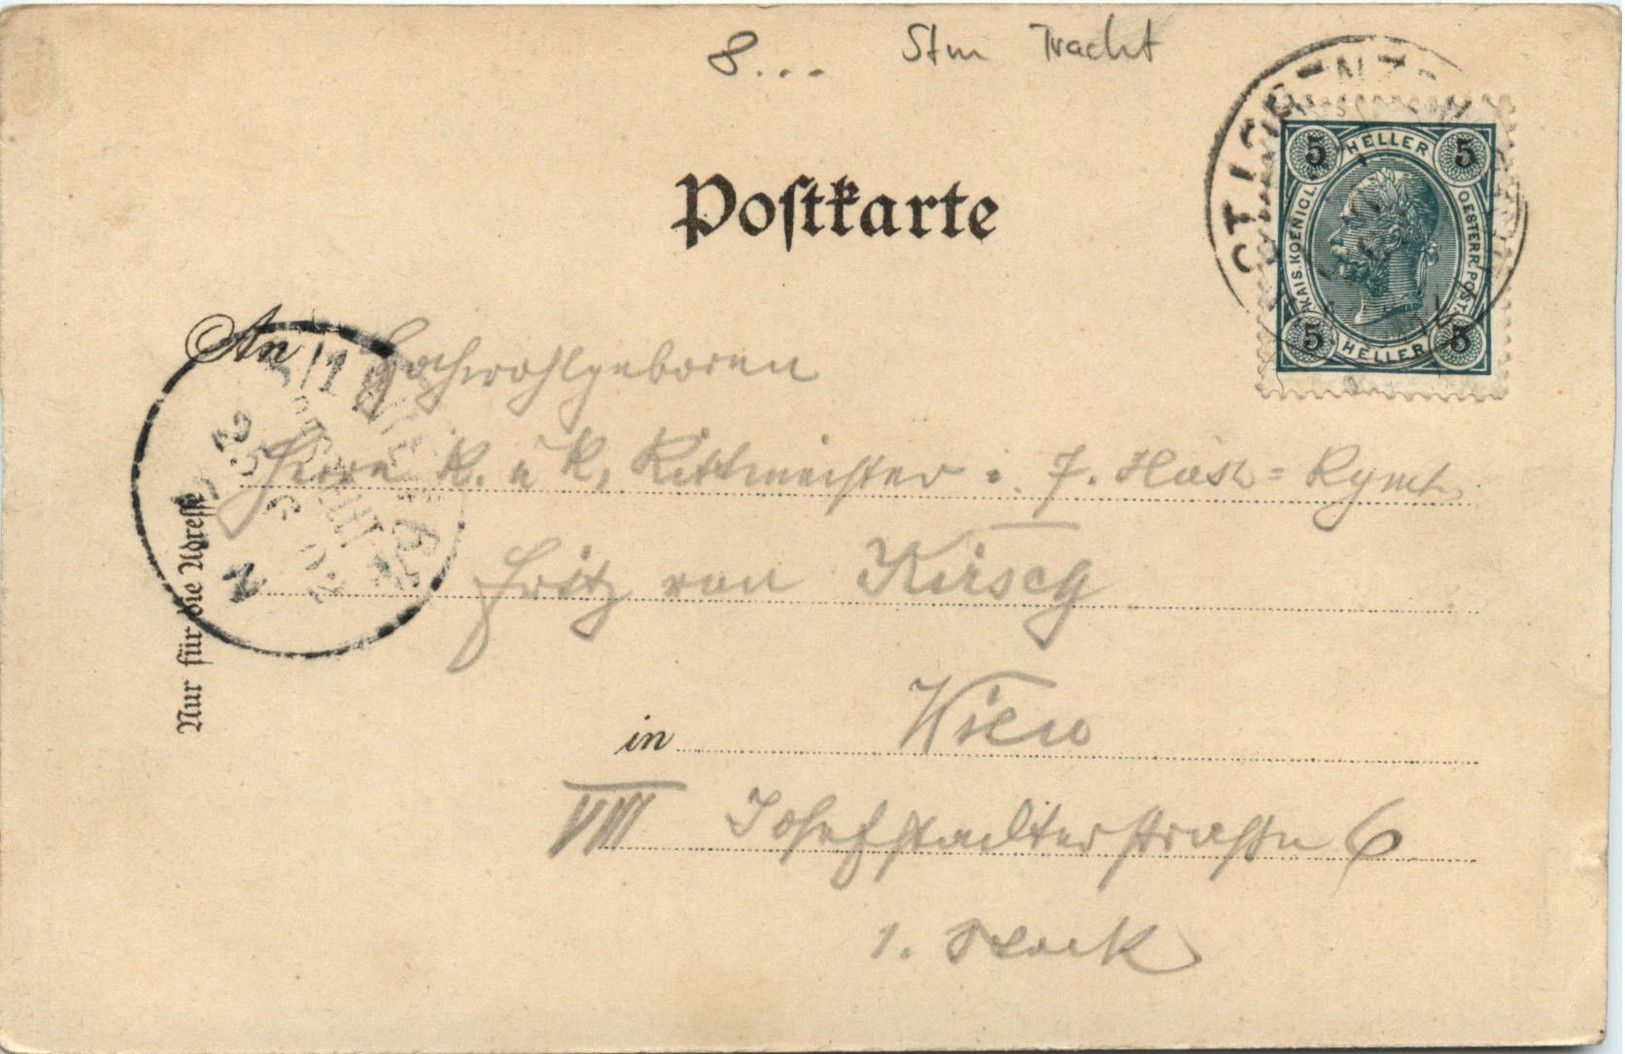 8... Stm Tracht
Postkarte
5 HELLER 5
KAIS. KOENIGL. OESTERR. POST.
5 HELLER 5
An Hochwohlgeboren
Herrn K. u K. Rittmeister i. 7. Hus = Rgmt.
Fritz von
in Wien
VIII Josefstädterstraße 6
1. Stock
Nur für die Adresse